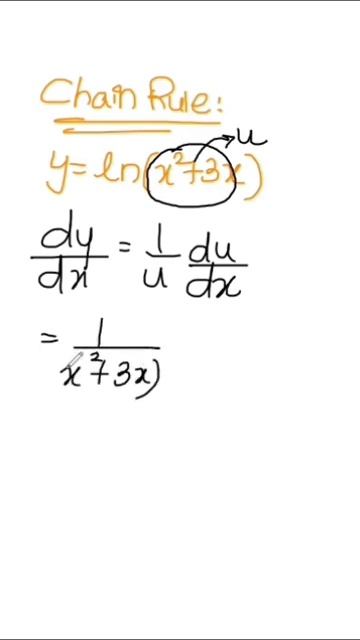 Chain Rule:
u
y = ln(x²+3x)
dy/dx = 1/u du/dx
= 1/x²+3x)